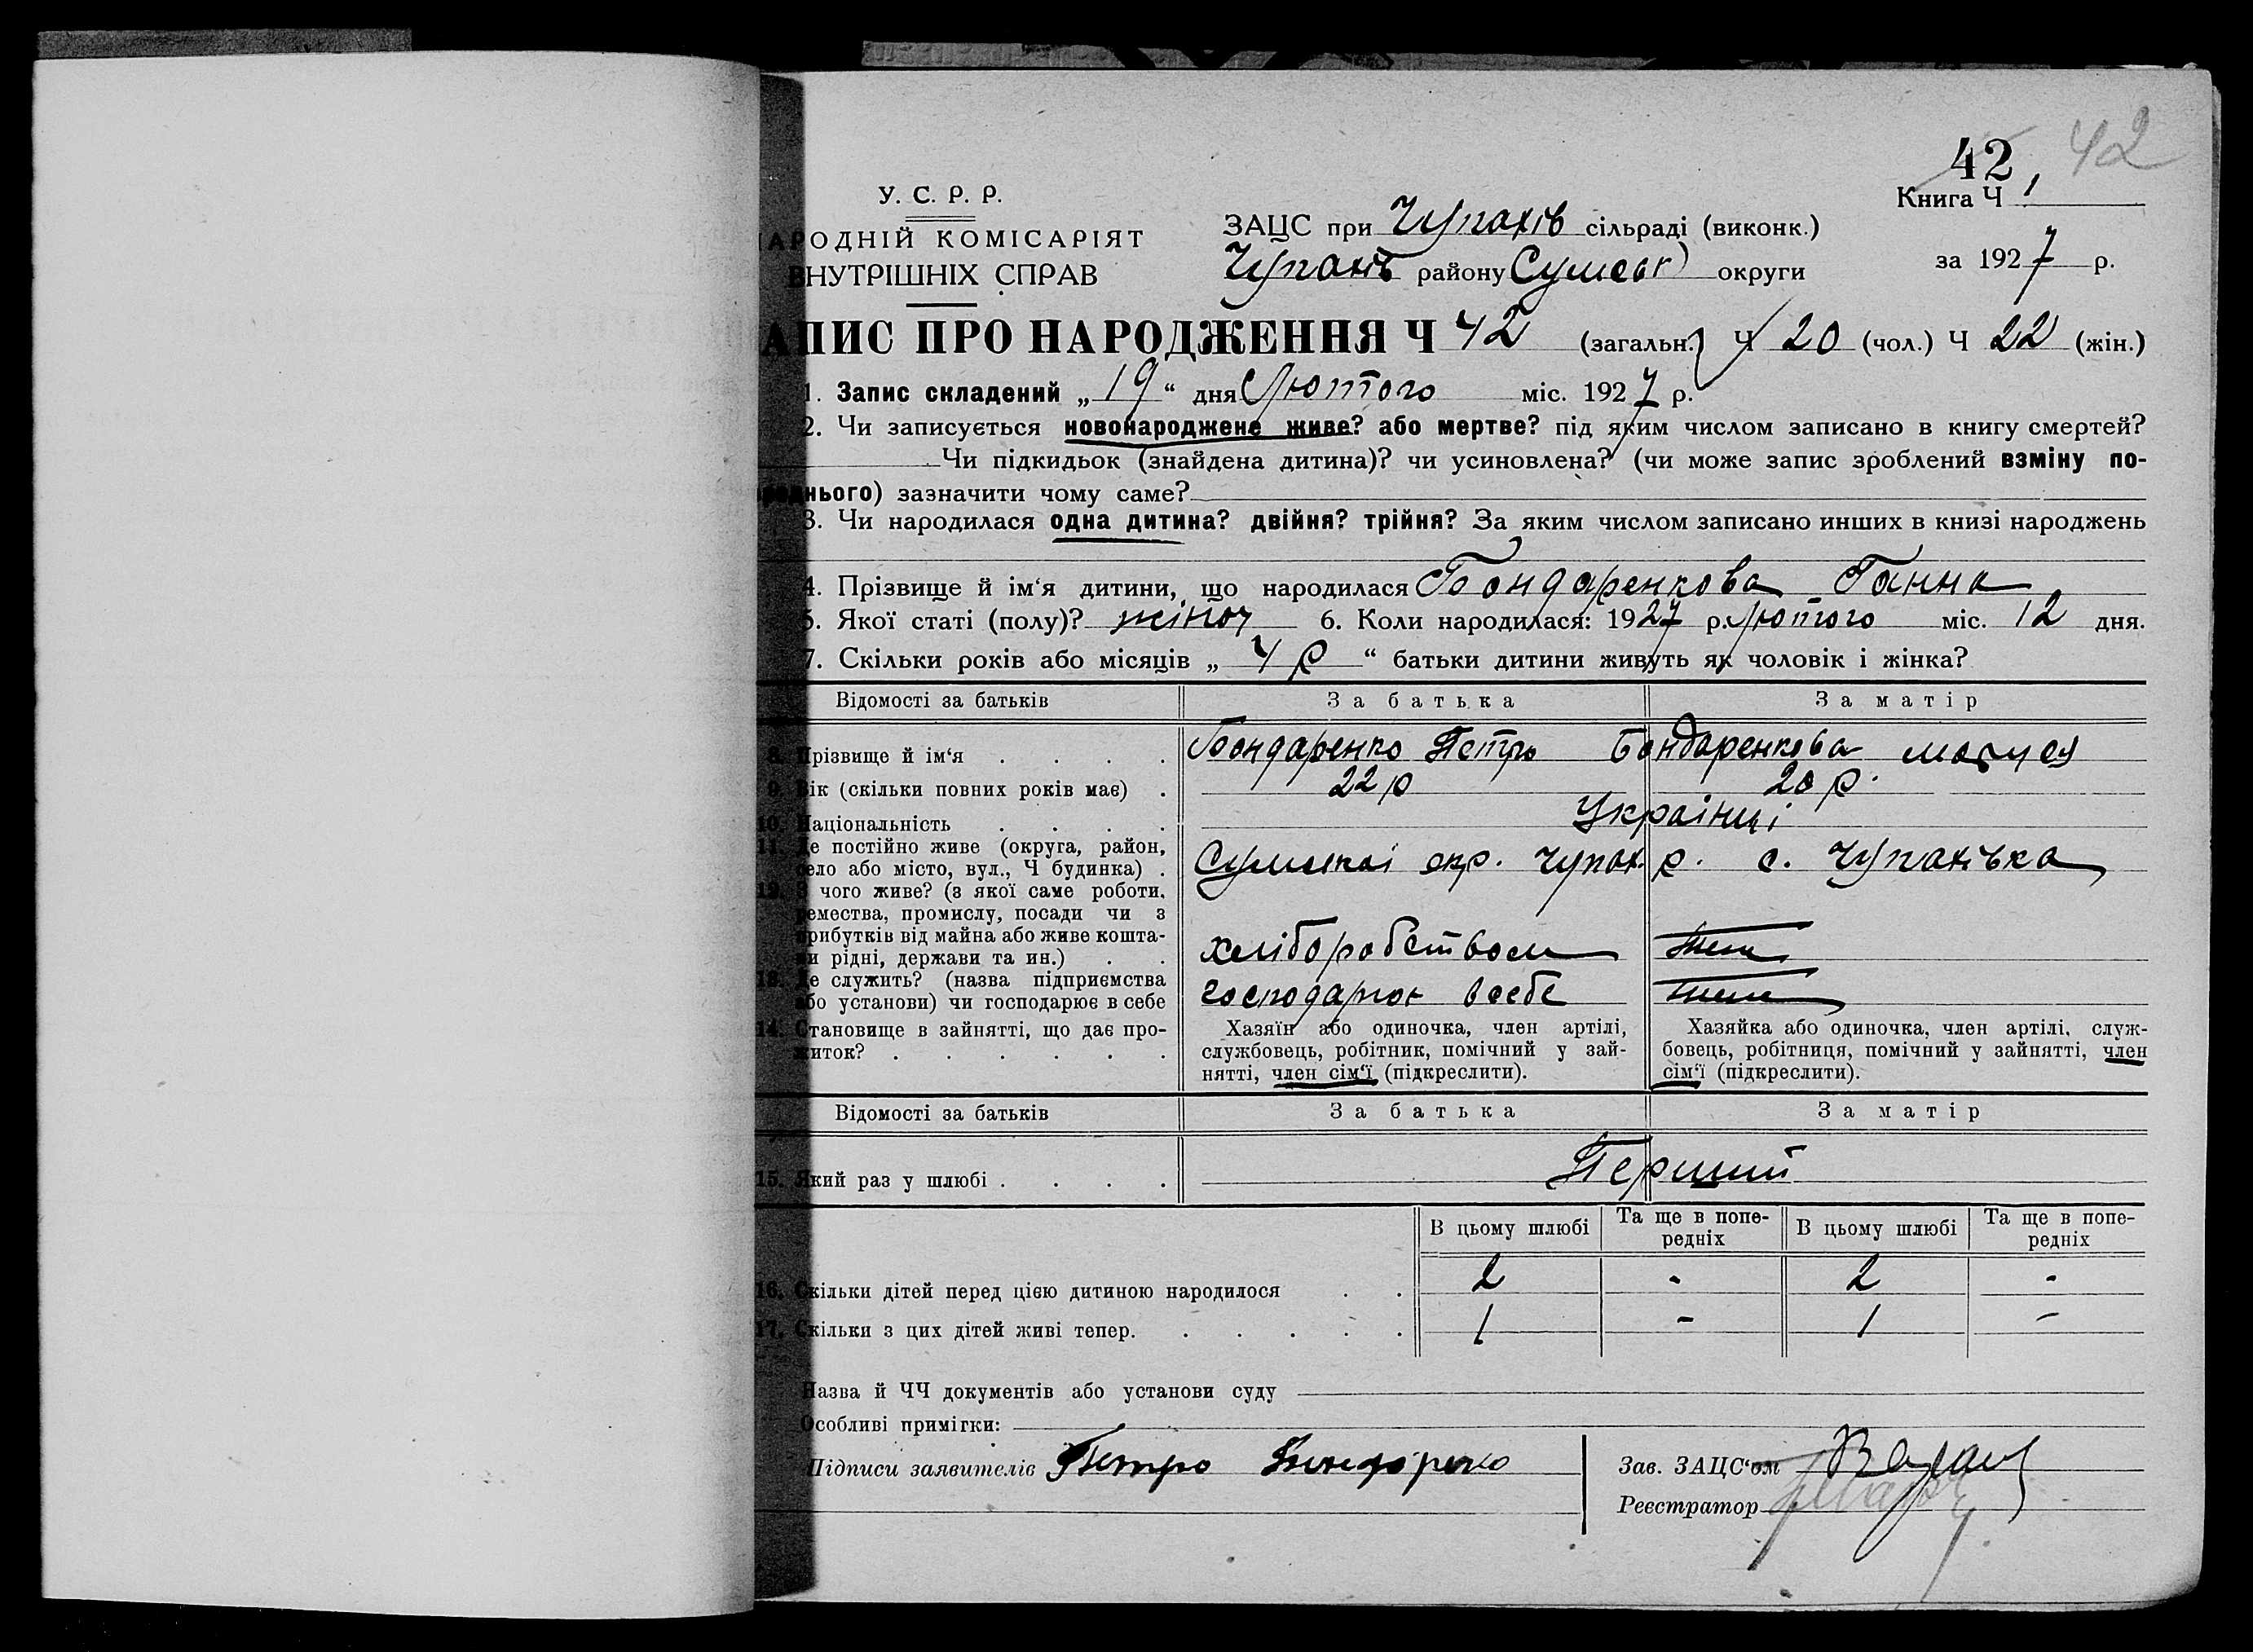 42 42
У. С. Р. Р.
Книга Ч 1
АРОДНІЙ КОМІСАРІЯТ
ЗАЦС при Чупахів сільраді (виконк.)
ВНУТРІШНІХ СПРАВ
Чупахів району Сумськ округи
за 1927 р.
АПИС ПРО НАРОДЖЕННЯ Ч 42 (загальн.) Ч 20 (чол.) Ч 22 (жін.)
1. Запис складений „19“ дня Лютого міс. 1927 р.
2. Чи записується новонароджене живе? або мертве? під яким числом записано в книгу смертей?
Чи підкидьок (знайдена дитина)? чи усиновлена? (чи може запис зроблений взміну по-
реднього) зазначити чому саме?
3. Чи народилася одна дитина? двійня? трійня? За яким числом записано инших в книзі народжень
4. Прізвище й ім‘я дитини, що народилася Бондаренкова Ганна
5. Якої статі (полу)? жіноч 6. Коли народилася: 1927 р. Лютого міс. 12 дня.
7. Скільки років або місяців „ 4 р “ батьки дитини живуть як чоловік і жінка?
Відомості за батьків За батька За матір
8. Прізвище й ім‘я Бондаренко Петро Бондаренкова Маруся
9. Вік (скільки повних років має) 22 р 20 р.
10. Національність Українці
11. Де постійно живе (округа, район,
село або місто, вул., Ч будинка) Сумської окр. Чупах. р. с. Чупахівка
12. З чого живе? (з якої саме роботи,
ремества, промислу, посади чи з
прибутків від майна або живе кошта-
ми рідні, держави та ин.) хліборобством
13. Де служить? (назва підприємства
або установи) чи господарює в себе господарює всебе
14. Становище в зайнятті, що дає про-
житок?
Хазяїн або одиночка, член артілі,
службовець, робітник, помічний у зай-
нятті, член сім‘ї (підкреслити).
Хазяйка або одиночка, член артілі, служ-
бовець, робітниця, помічний у зайнятті, член
сім‘ї (підкреслити).
Відомості за батьків За батька За матір
15. Який раз у шлюбі Перший
В цьому шлюбі Та ще в попе-
редніх В цьому шлюбі Та ще в попе-
редніх
16. Скільки дітей перед цією дитиною народилося 2 - 2 -
17. Скільки з цих дітей живі тепер. 1 - 1 -
Назва й ЧЧ документів або установи суду
Особливі примігки:
Підписи заявителів Петро Бондаренко
Зав. ЗАЦС‘ом
Реєстратор